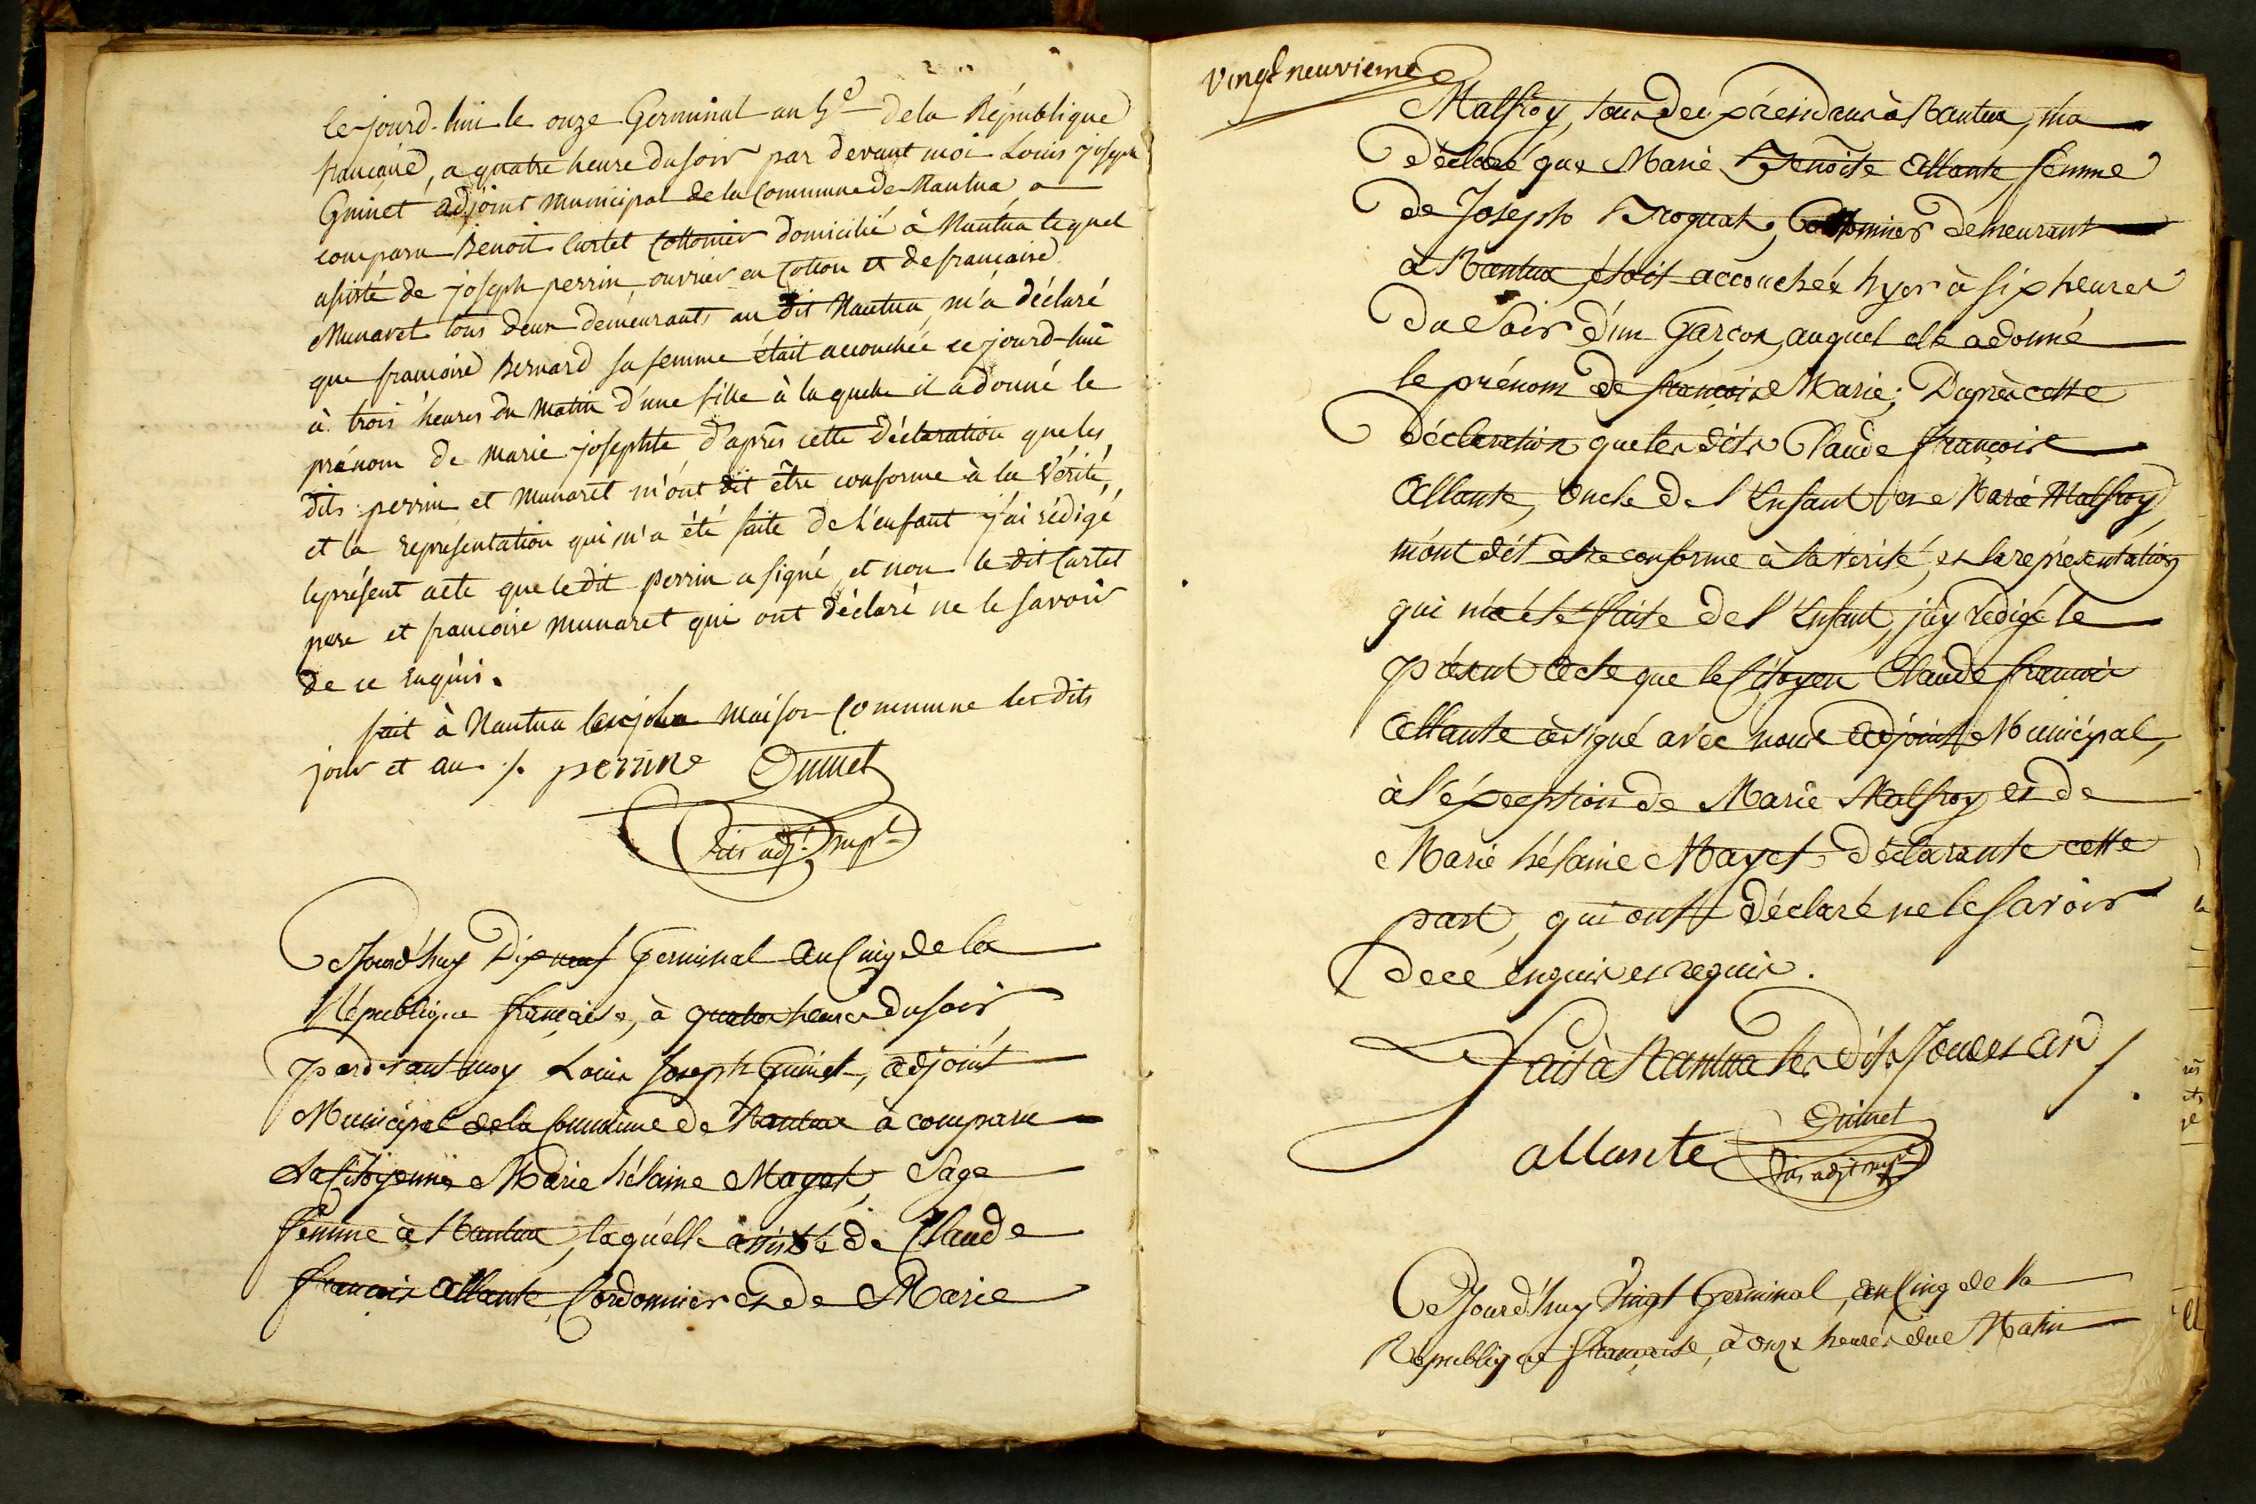 Cejourd-hui le onze Germinal an 5e de la République
francaise, a quatre heure du soir par devant moi Louis joseph
Guinet adjoint municipal de la Commune de Nantua a
comparu Benoit Curtet Cottonier domicilié à Nantua lequel
assisté de joseph perrin, ouvrier en Cotton et de francaise
Munaret tous deux demeurants au dit Nantua, m'a déclaré
que francoise Bernard sa femme était accouchée cejourd-hui
à trois heures du matin d'une fille à laquelle il a donné le
prénom de marie josephte d'après cette déclaration que les
dits perrin et munaret m'ont dit être conforme à la vérité,
et la representation qui m'a été faite de l'enfant j'ai rédigé
le présent acte que le dit perrin a signé, et non le dit Curtet
pere et francoise munaret qui ont déclaré ne le savoir
de ce enquis.
fait à Nantua maison Commune les dits
jour et an ./. perrine Guinet
adjt. mupl
Cejourd'huy Dixneuf Germinal an Cinq de la
République française, à quatre heures du soir
pardevant moy Louis Joseph Guinet, adjoint
Municipal de la Commune de Nantua a comparu
La Citoyenne Marie hélaine Mayet, Sage
femme à Nantua, laquelle assisté de Claude
françois Allante Cordonnier et de Marie
Vingt neuvieme
Malfroy, tous deux résidans à Nantua, m'a
déclaré que Marie Benoite Allante femme
de Joseph Cottonnier demeurant
à Nantua étoit accouchée hyer à six heures
du soir d'un Garçon, auquel elle a donné
le prénom de françois Marie; D'après cette
déclaration que les dits Claude françois
Allante, oncle de l'Enfant et Marie Malfroy
m'ont dit être conforme à la vérité, et la représentation
qui m'a été faite de l'Enfant, j'ay rédigé le
présent acte que le Citoyen Claude francois
Allante a signé avec nous adjoint Municipal,
à l'éxception de Marie Malfroy et de
Marie hélaine Mayet déclarante cette
part, qui ont déclaré ne le savoir
de ce enquis et requis.
Fait à Nantua les dits Jour et an
Guinet
allante
adjt mupl
Cejourd'huy Vingt Germinal, an Cinq de la
République française, à onze heures du Matin